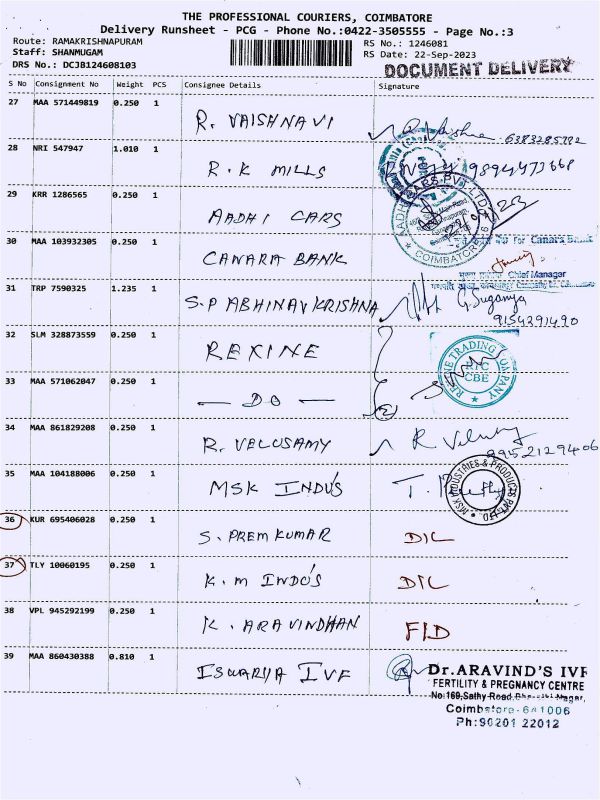 THE PROFESSIONAL COURIERS, COIMBATORE
Delivery Runsheet - PCG - Phone No.:0422-3505555 - Page No.:3
Route: RAMAKRISHNAPURAM RS No.: 1246081
Staff: SHANMUGAM RS Date: 22-Sep-2023
DRS No.: DCJB124608103 DOCUMENT DELIVERY
S No Consignment No Weight PCS Consignee Details Signature
27 MAA 571449819 0.250 1 R. VAISHNAVI
28 NRI 547947 1.010 1 R.K MILLS
29 KRR 1286565 0.250 1 AADHI CARS
COIMBATORE
30 MAA 103932305 0.250 1 CANARA BANK For Canara Bank
Chief Manager
31 TRP 7590325 1.235 1 S.P ABHINAV KRISHNA G. Suganya
9154291490
32 SLM 328873559 0.250 1 REXINE
REXINE TRADING COMPANY
RTC
CBE
33 MAA 571062047 0.250 1 — DO —
34 MAA 861829208 0.250 1 R. VELUSAMY
35 MAA 104188006 0.250 1 MSK INDU'S
MSK INDUSTRIES & PRODUCTS PVT. LTD.
36 KUR 695406028 0.250 1 S. PREM KUMAR D/L
37 TLY 10060195 0.250 1 K.M INDU'S D/L
38 VPL 945292199 0.250 1 K. ARAVINDHAN F/D
39 MAA 860430388 0.810 1 ISWARYA IVF Dr.ARAVIND'S IVF
FERTILITY & PREGNANCY CENTRE
No:169,Sathy Road,
Coimbatore-641006
Ph:90201 22012